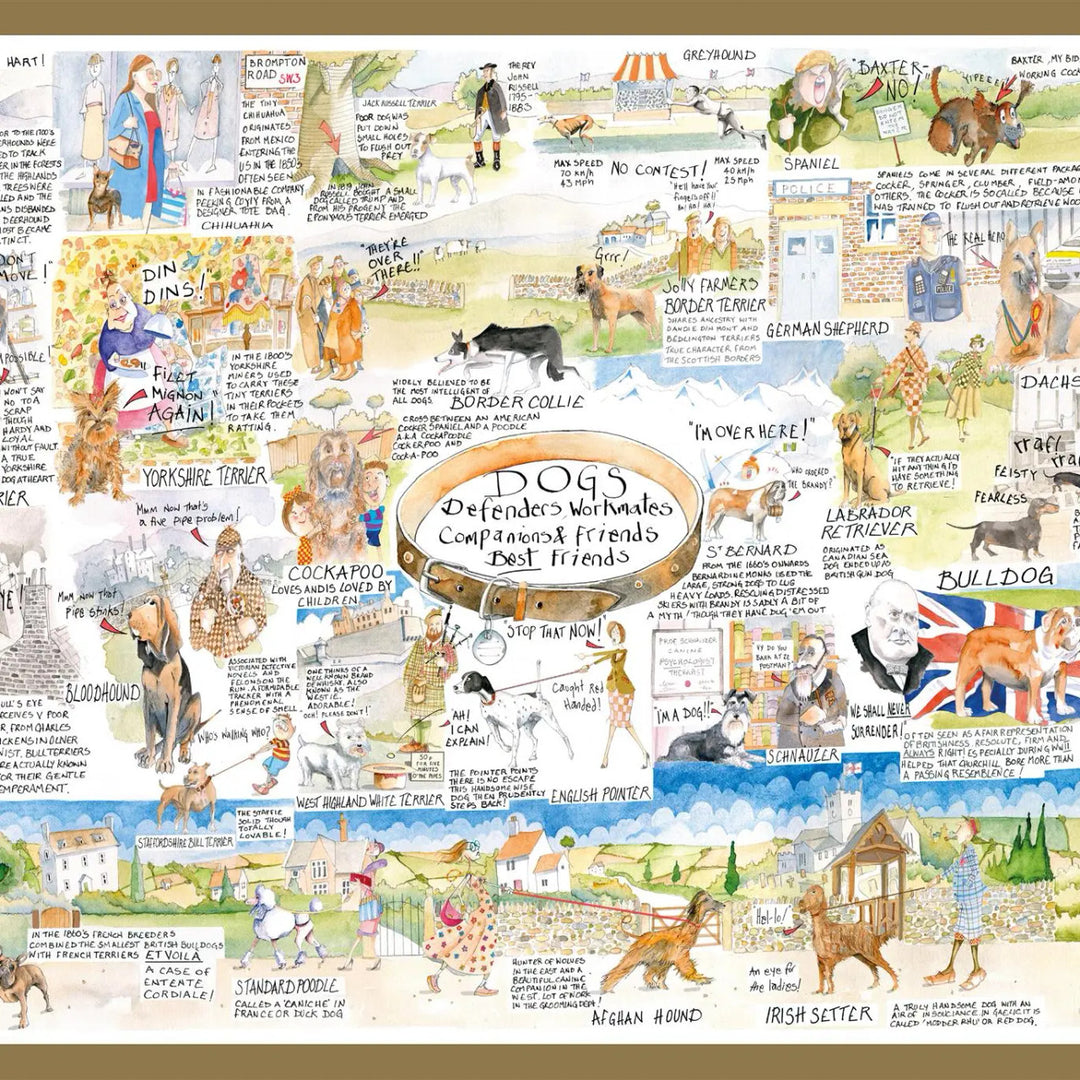 HART!
OR TO THE 1700'S
ERHOUNDS WERE
ED TO TRACK
ER IN THE FORESTS
THE HIGHLANDS
TREES WERE
LLED AND THE
NS DISBANDED
DEERHOUND
MOST BECAME
TINCT.
BROMPTON
ROAD SW3
THE TINY
CHIHUAHUA
ORIGINATES
FROM MEXICO
ENTERING THE
US IN THE 1850S
OFTEN SEEN
IN FASHIONABLE COMPANY
PEEKING COYLY FROM A
DESIGNER TOTE DAG.
CHIHUAHUA
JACK RUSSELL TERRIER
POOR DOG WAS
PUT DOWN
SMALL HOLES
TO FLUSH OUT
PREY
IN 1819 JOHN
RUSSELL BOUGHT A SMALL
DOG CALLED TRUMP AND
FROM HIS PROGENY THE
EPONYMOUS TERRIER EMERGED
THE REV
JOHN
RUSSELL
1795-
1883
GREYHOUND
MAX SPEED
70 KM/H
43 MPH
NO CONTEST!
MAX SPEED
40 KM/H
25 MPH
"BAXTER-
NO!"
DANGER
DO NOT
ENTER
THE
WATER
YIPEEE!
BAXTER, MY BID
WORKING COCK
SPANIEL
SPANIELS COME IN SEVERAL DIFFERENT PACKAG
COCKER, SPRINGER, CLUMBER, FIELD-AMO
OTHERS. THE COCKER IS SO CALLED BECAUSE I
WAS TRAINED TO FLUSH OUT AND RETRIEVE WOO
DON'T
MOVE!"
POSSIBLE!
WON'T SAY
NO TO A
SCRAP
THOUGH
HARDY AND
LOYAL
WITHOUT FAULT.
A TRUE
YORKSHIRE
DOG AT HEART
RIER
DIN
DINS!
"FILET
MIGNON
AGAIN!"
IN THE 1800'S
YORKSHIRE
MINERS USED
TO CARRY THESE
TINY TERRIERS
IN THEIR POCKETS
TO TAKE THEM
RATTING.
YORKSHIRE TERRIER
"THEY'RE
OVER
THERE!!"
WIDELY BELIEVED TO BE
THE MOST INTELLIGENT OF
ALL DOGS.
BORDER COLLIE
Grrr!
"He'll have your
fingers off!
Ho! Ho! Ho!
JOLLY FARMERS
BORDER TERRIER
SHARES ANCESTRY WITH
DANDIE DINMONT AND
BEDLINGTON TERRIERS
TRUE CHARACTER FROM
THE SCOTTISH BORDERS
POLICE
THE REAL HERO
POLICE
GERMAN SHEPHERD
CROSS BETWEEN AN AMERICAN
COCKER SPANIEL AND A POODLE
A.K.A COCKAPOODLE
COCKERPOO AND
COCK-A-POO
COCKAPOO
LOVES AND IS LOVED BY
CHILDREN
DOGS
Defenders, Workmates
Companions & Friends
Best Friends
"I'M OVER HERE!"
WHO ORDERED
THE BRANDY?
ST BERNARD
FROM THE 1660'S ONWARDS
BERNARDINE MONKS USED THE
LARGE, STRONG DOGS TO LUG
HEAVY LOADS. RESCUING DISTRESSED
SKIERS WITH BRANDY IS SADLY A BIT OF
A MYTH! THOUGH THEY HAVE DUG 'EM OUT
"IF THEY ACTUALLY
HIT ANYTHING I'D
HAVE SOMETHING
TO RETRIEVE!
LABRADOR
RETRIEVER
ORIGINATED AS
CANADIAN SEA
DOG ENDED UP AS
BRITISH GUN DOG
DACHS
rraff
rra
FEISTY
FEARLESS
Mmm Now that's
a five pipe problem!
Mmm now that
Pipe stinks!
BLOODHOUND
ASSOCIATED WITH
VICTORIAN DETECTIVE
NOVELS AND
FELONS ON THE
RUN. A FORMIDABLE
TRACKER WITH A
PHENOMENAL
SENSE OF SMELL.
YE!
BULL'S EYE
RECEIVES V POOR
R, FROM CHARLES
ICKENS IN OLIVER
WIST. BULL TERRIERS
RE ACTUALLY KNOWN
OR THEIR GENTLE
EMPERAMENT.
WHO'S WALKING WHO?
STAFFORDSHIRE BULL TERRIER
THE STAFFIE
SOLID THOUGH
TOTALLY
LOVABLE!
ONE THINKS OF A
WELL KNOWN BRAND
OF WHISKY. ALSO
KNOWN AS THE
WESTIE.
ADORABLE!
OCH! PLEASE DON'T!"
50p
FOR FIVE
MINUTES
O' THE PIPES
WEST HIGHLAND WHITE TERRIER
"STOP THAT NOW!"
Caught Red
Handed!
AH!
I CAN
EXPLAIN!
THE POINTER POINTS
THERE IS NO ESCAPE
THIS HANDSOME WISE
DOG THEN PRUDENTLY
STEPS BACK!
ENGLISH POINTER
PROF SCHNAUZER
CANINE
PSYCHOLOGIST
THERAPIST
VY DO YOU
BARK AT ZE
POSTMAN?
"I'M A DOG!!"
SCHNAUZER
BULLDOG
"WE SHALL NEVER
SURRENDER!"
OFTEN SEEN AS A FAIR REPRESENTATION
OF BRITISHNESS. RESOLUTE, FIRM AND,
ALWAYS RIGHT! ESPECIALLY DURING WWII
HELPED THAT CHURCHILL BORE MORE THAN
A PASSING RESEMBLENCE!
IN THE 1860'S FRENCH BREEDERS
COMBINED THE SMALLEST BRITISH BULLDOGS
WITH FRENCH TERRIERS ET VOILA
A CASE OF
ENTENTE
CORDIALE!
STANDARD POODLE
CALLED A 'CANICHE' IN
FRANCE OR DUCK DOG
HUNTER OF WOLVES
IN THE EAST AND A
BEAUTIFUL CANINE
COMPANION IN THE
WEST. LOT OF WORK
IN THE GROOMING DEPT!
AFGHAN HOUND
Hel-lo!
An eye for
the ladies!
IRISH SETTER
A TRULY HANDSOME DOG WITH AN
AIR OF INSOUCIANCE. IN GAELIC IT IS
CALLED 'MODDER RHU' OR RED DOG.